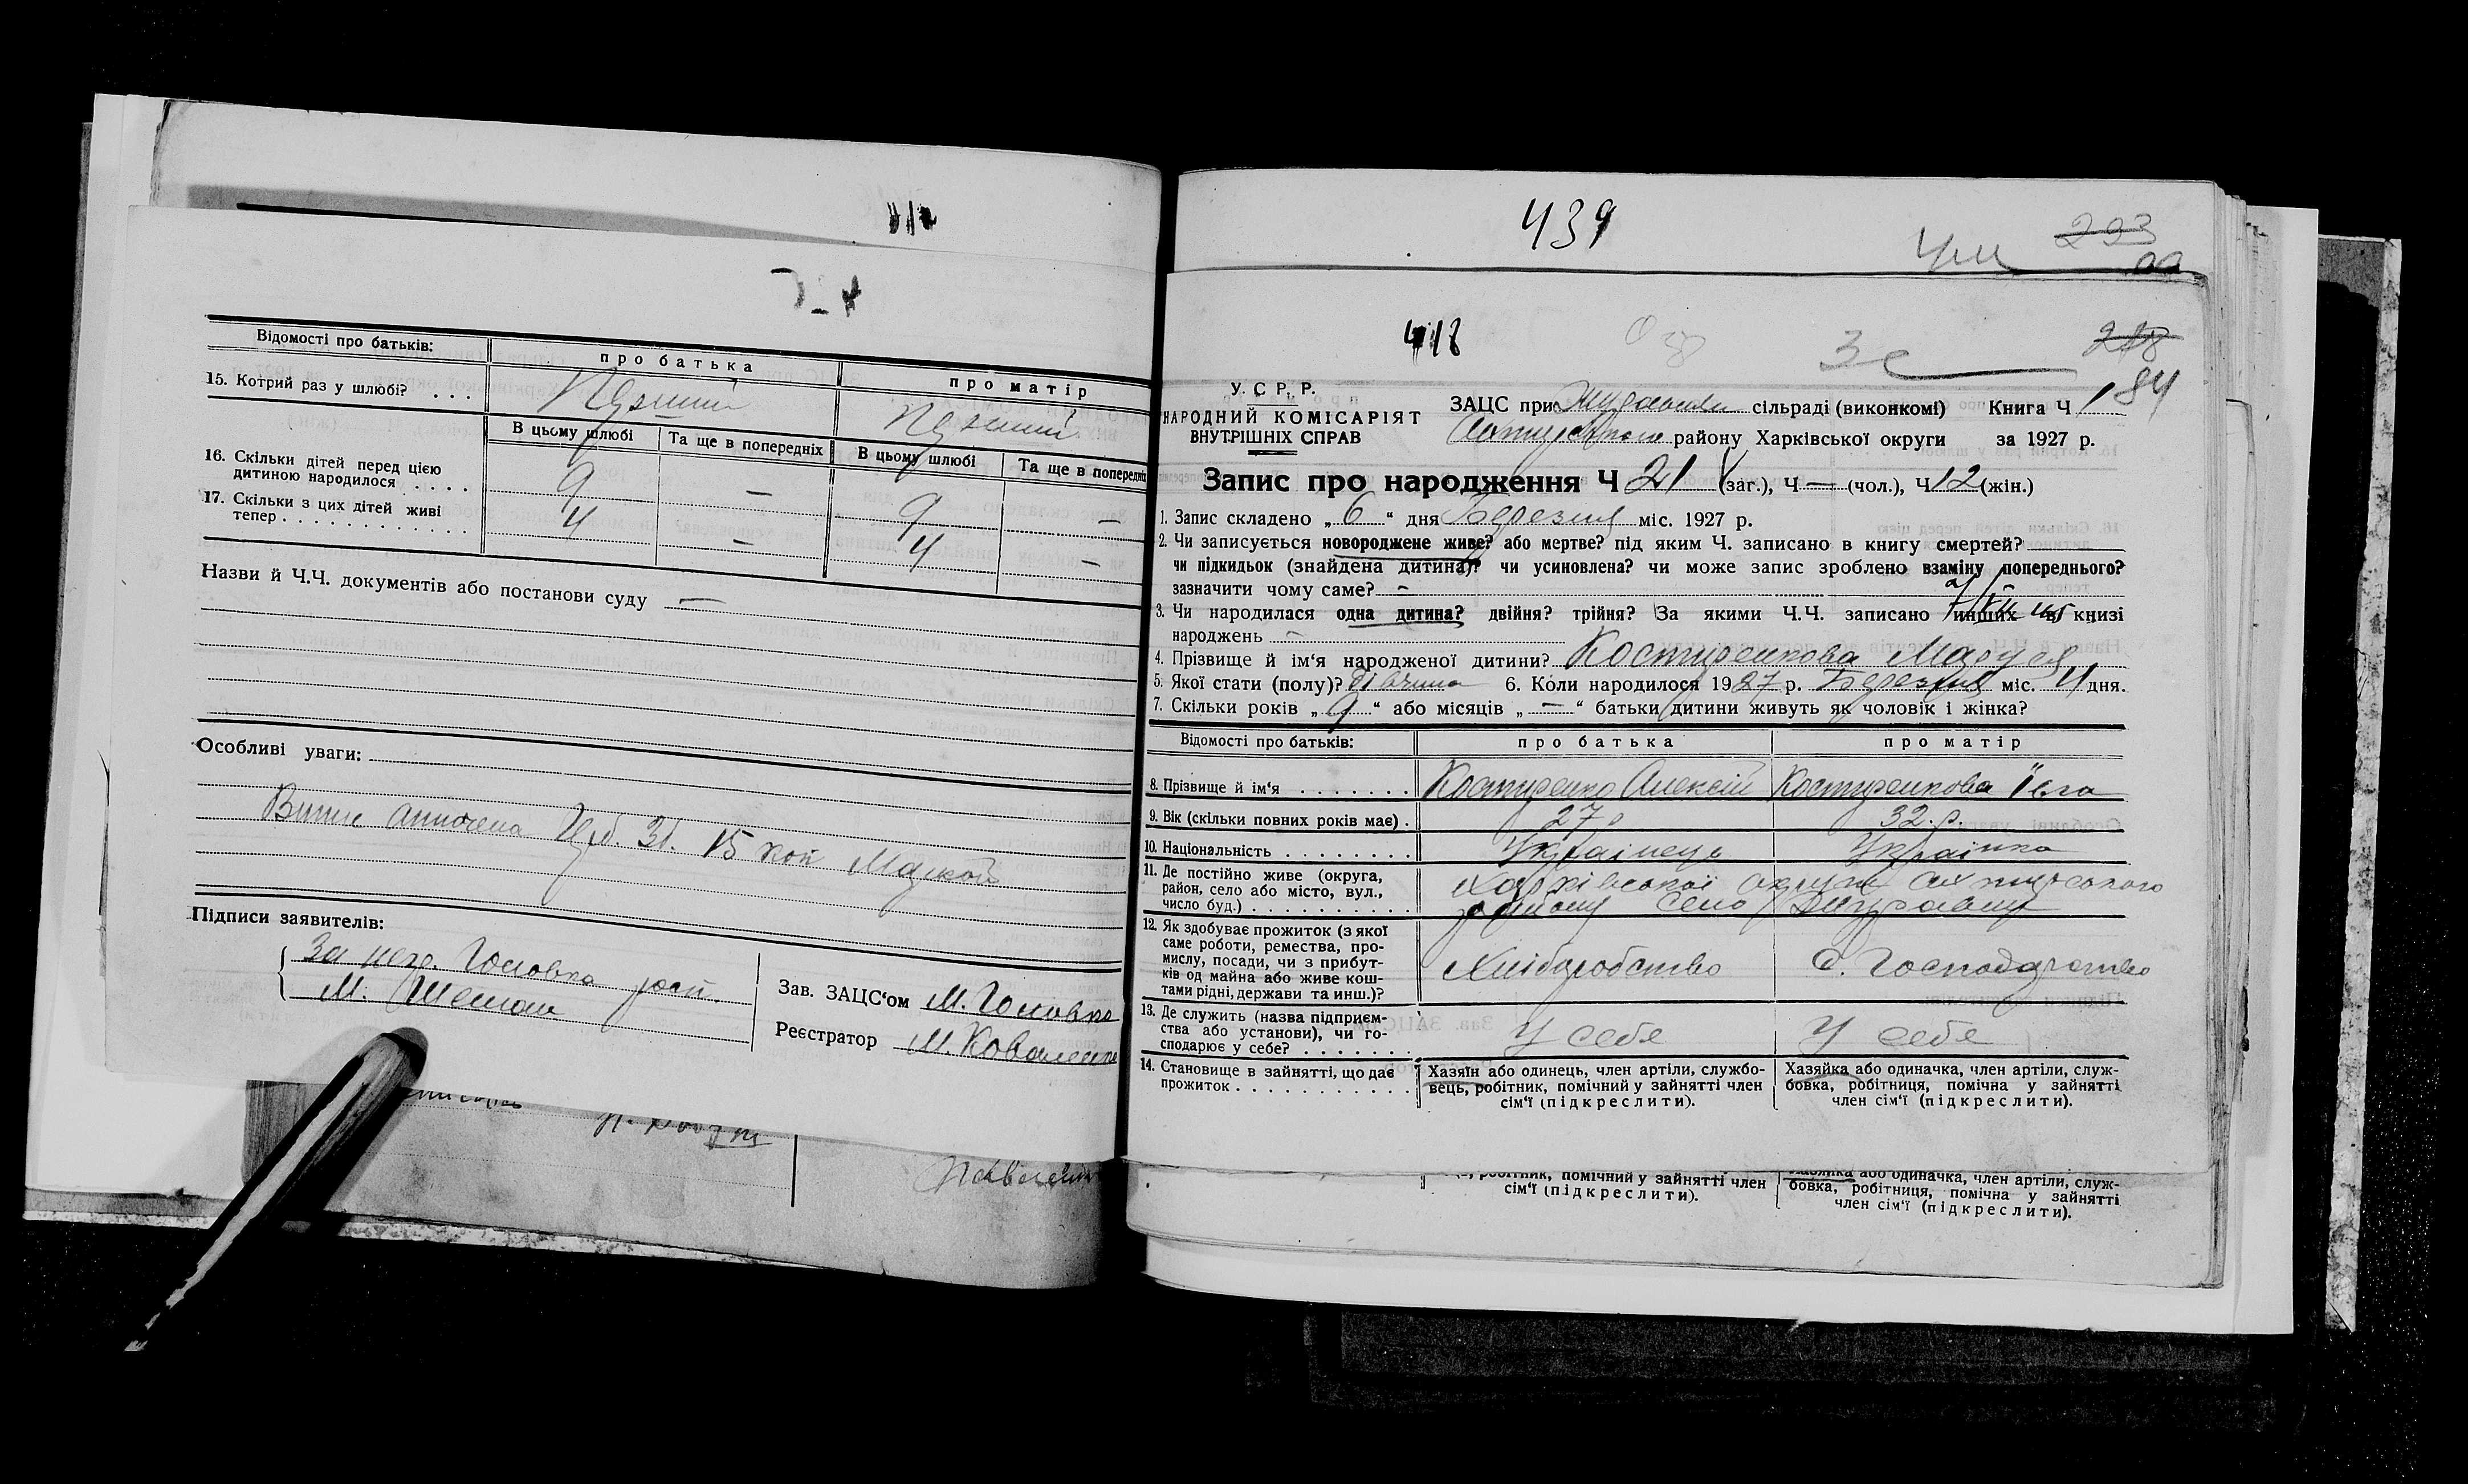 Відомості про батьків:
про батька
про матір
15. Котрий раз у шлюбі? . . .
В цьому шлюбі
Та ще в попередніх
В цьому шлюбі
Та ще в попередніх
16. Скільки дітей перед цією
дитиною народилося . . . .
9
—
9
—
17. Скільки з цих дітей живі
тепер . . . . . . . . . . . .
4
—
4
—
Назви й Ч.Ч. документів або постанови суду —
Особливі уваги:
15 коп
Підписи заявителів:
За негр. Головко
М.
Зав. ЗАЦС'ом М. Головко
Реєстратор М. Коваленко
439
293
418
218
184
У. С. Р. Р.
НАРОДНИЙ КОМІСАРІЯТ
ВНУТРІШНІХ СПРАВ
ЗАЦС при сільраді (виконкомі) Книга Ч 1
району Харківської округи за 1927 р.
Запис про народження Ч 21 (заг.), Ч — (чол.), Ч 12 (жін.)
1. Запис складено „ 6 “ дня Березня міс. 1927 р.
2. Чи записується новороджене живе? або мертве? під яким Ч. записано в книгу смертей?
чи підкидьок (знайдена дитина)? чи усиновлена? чи може запис зроблено взаміну попереднього?
зазначити чому саме? —
3. Чи народилася одна дитина? двійня? трійня? За якими Ч.Ч. записано инших в книзі
народжень —
4. Прізвище й ім'я народженої дитини? Костуренкова Маруся
5. Якої стати (полу)? дівчина 6. Коли народилося 1927 р. Березня міс. 4 дня.
7. Скільки років „ 9 “ або місяців „ — “ батьки дитини живуть як чоловік і жінка?
Відомості про батьків:
про батька
про матір
8. Прізвище й ім'я . . . . . . .
Костуренко Алексій
Костуренкова Ївга
9. Вік (скільки повних років має) .
27 р
32. р.
10. Національність . . . . . . . .
Українець
Українка
11. Де постійно живе (округа,
район, село або місто, вул.,
число буд.) . . . . . . . . . .
Харківської округи Охтирського
району село Журавне
12. Як здобуває прожиток (з якої
саме роботи, ремества, про-
мислу, посади, чи з прибут-
ків од майна або живе кош-
тами рідні, держави та инш.)?
Хліборобство
С. Господарство
13. Де служить (назва підприєм-
ства або установи), чи го-
сподарює у себе? . . . . . . .
У себе
У себе
14. Становище в зайнятті, що дає
прожиток . . . . . . . . . . .
Хазяїн або одинець, член артіли, службо-
вець, робітник, помічний у зайнятті член
сім'ї (підкреслити).
Хазяйка або одиначка, член артіли, служ-
бовка, робітниця, помічна у зайнятті
член сім'ї (підкреслити).
робітник, помічний у зайнятті член
сім'ї (підкреслити).
Хазяйка або одиначка, член артіли, служ-
бовка, робітниця, помічна у зайнятті
член сім'ї (підкреслити).